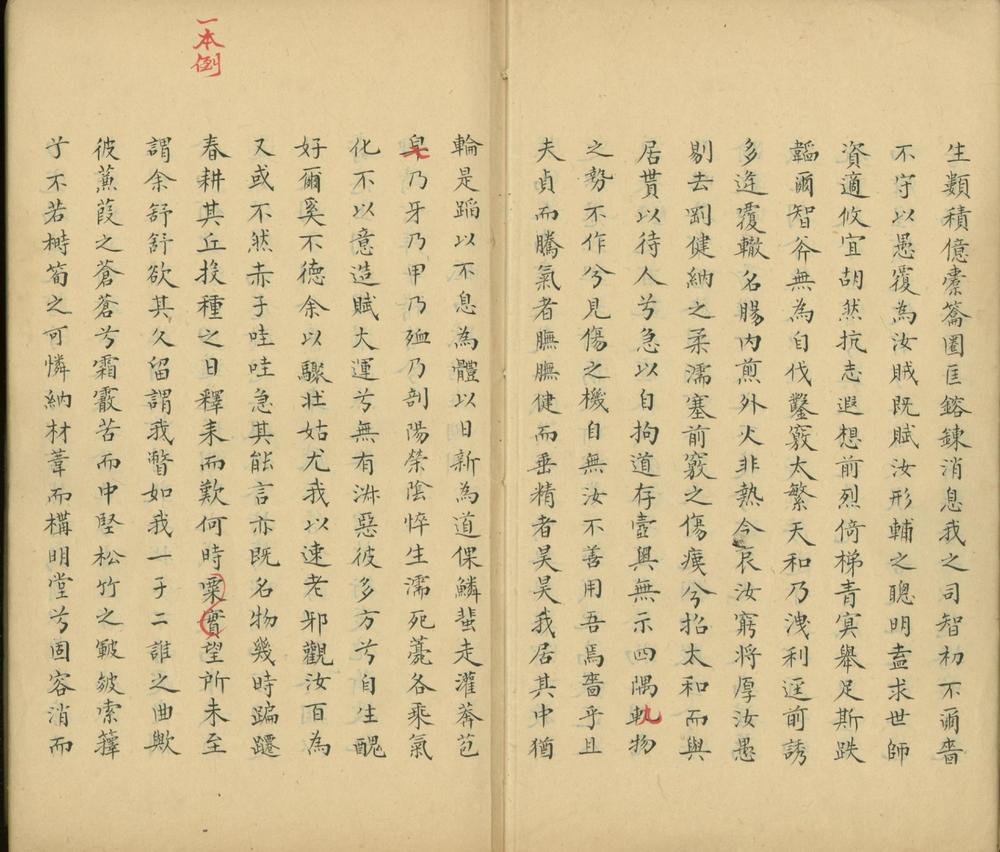 生類積億橐籥圈匡鎔鍊消息我之司智初不爾嗇
不守以愚覆為汝賊既賦汝形輔之聰明盍求世師
資適攸宜胡然抗志遐想前烈倚梯青冥舉足斯跌
韜爾智斧無為自伐鑿竅太繁天和乃洩利逕前誘
多迕覆轍名腸內煎外火非熱今哀汝窮將厚汝愚
剔去剛健納之柔濡塞前竅之傷痍兮招太和而與
居貰以待人兮急以自拘道存壼奧無示四隅軌物
之勢不作兮見傷之機自無汝不善用吾焉嗇乎且
夫貞而騰氣者膴膴健而垂精者昊昊我居其中猶
輪是蹈以不息為體以日新為道倮鱗蜚走灌莽苞
皁乃牙乃甲乃殈乃剖陽榮陰悴生濡死薧各乘氣
化不以意造賦大運兮無有淑惡彼多方兮自生醜
好爾奚不德余以驟壯姑尤我以速老邪觀汝百為
又或不然赤子哇哇急其能言亦既名物幾時蹁躚
春耕其丘投種之日釋耒而歎何時粟實望所未至
謂余舒舒欲其久留謂我瞥如我一予二誰之曲歟
彼蒹葭之蒼蒼兮霜霰苦而中堅松竹之皸皴索籜
兮不若樹筍之可憐納材葦而構明堂兮固容消而
一本倒